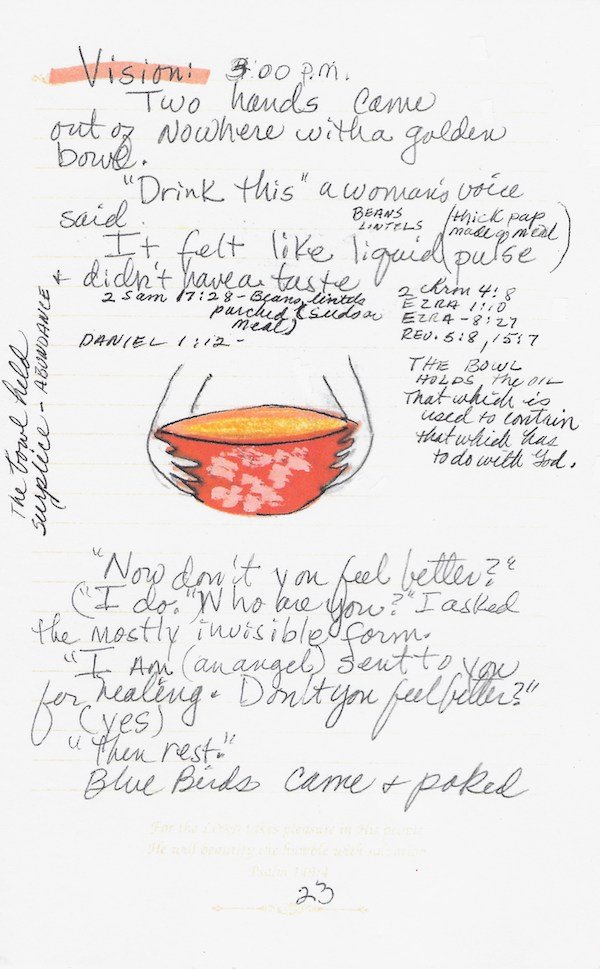 Vision: 3:00 p.m.
Two hands came
out of nowhere with a golden
bowl.
"Drink this" a woman's voice
said.
BEANS
LINTELS
(thick pap
made of meal)
It felt like liquid pulse
& didn't have a taste
2 Sam 17:28 - Beans, lintels
parched (seeds or
meal)
DANIEL 1:12 -
2 Chron 4:8
EZRA 1:10
EZRA - 8:27
REV. 5:8, 15:7
THE BOWL
HOLDS the OIL
That which is
used to contain
that which has
to do with God.
The bowl held
surplice - ABUNDANCE
"Now don't you feel better?"
("I do." "Who are you?" I asked
the mostly invisible form.
"I Am (an angel) sent to you
for healing. Don't you feel better?"
(yes)
"Then rest."
Blue Birds came & poked
For the LORD takes pleasure in His people
He will beautify the humble with salvation
Psalm 149:4
23